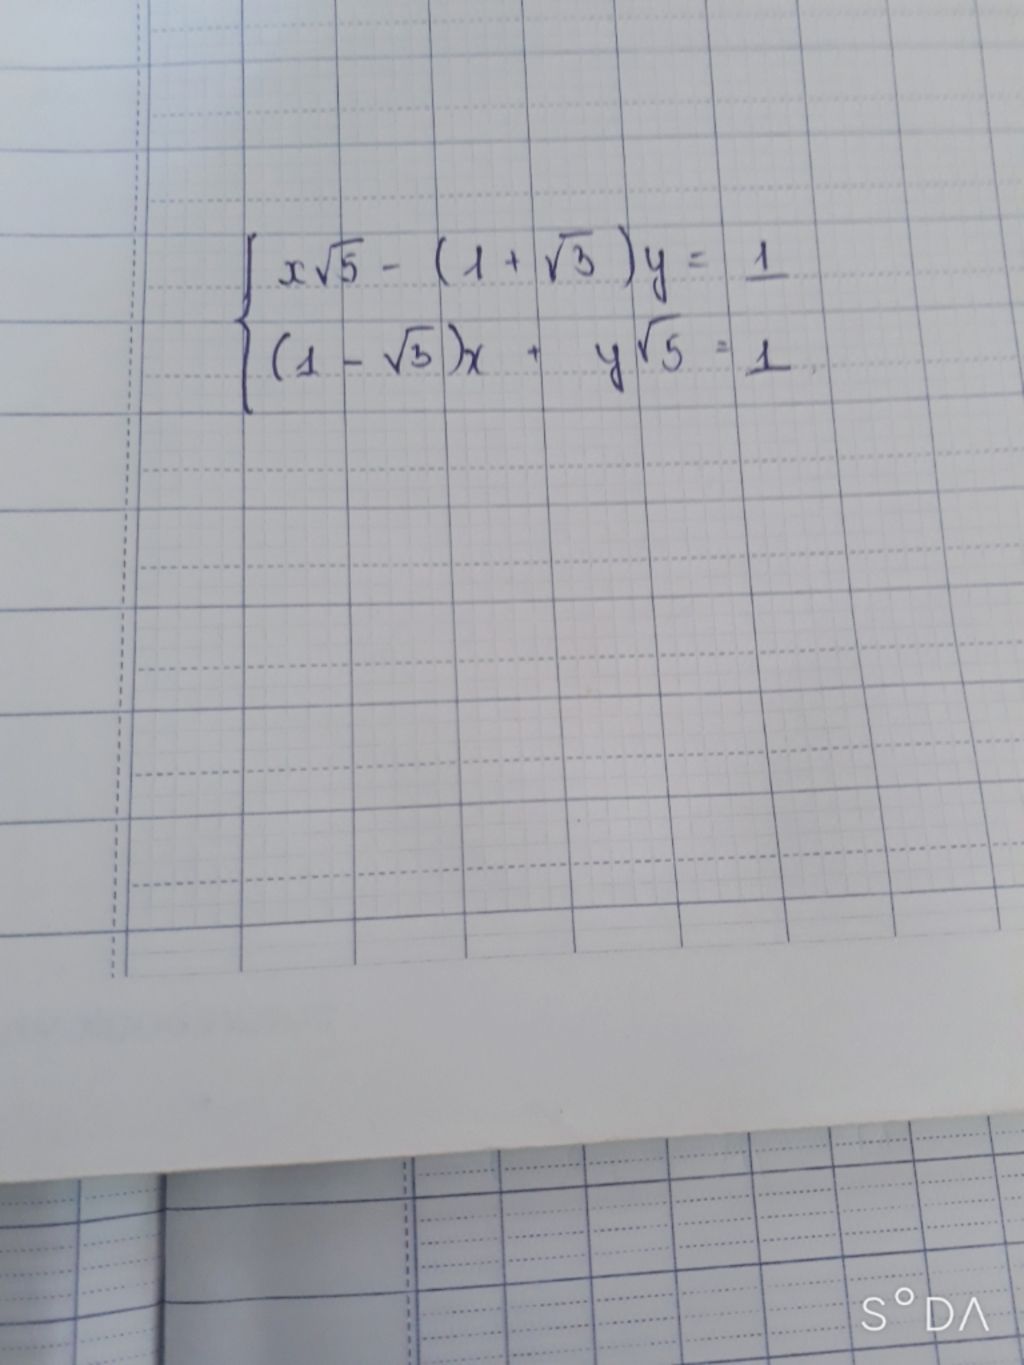 x√5 - (1 + √3)y = 1
(1 - √3)x + y√5 = 1
S°DA